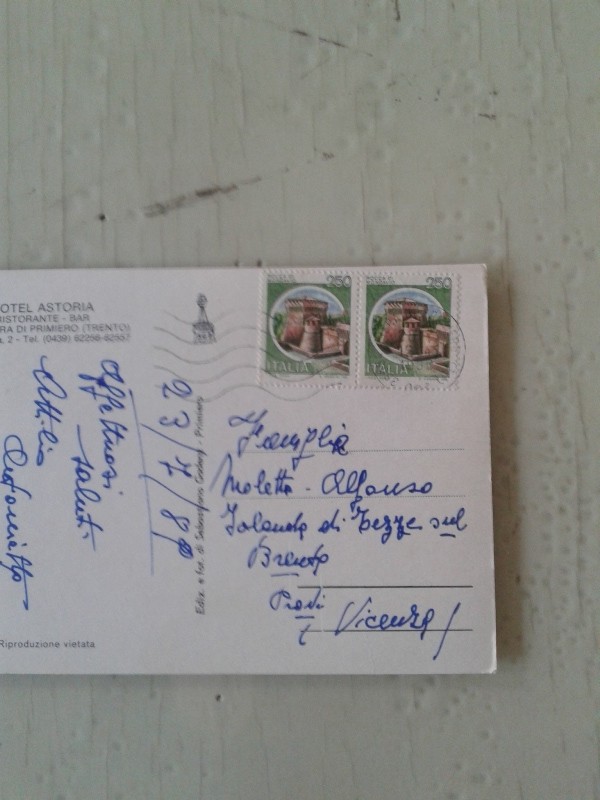 OTEL ASTORIA
RISTORANTE - BAR
RA DI PRIMIERO (TRENTO)
a, 2 - Tel. (0439) 62256-62557
Affettuosi
saluti
Attilio
23/7/89
Ediz. e fot. di Sebastiano - Primiero
Riproduzione vietata
250
ITALIA
250
ITALIA
Famiglia
Moletta - Alfonso
Jolanda di Tezze sul
Brenta
Vicenza